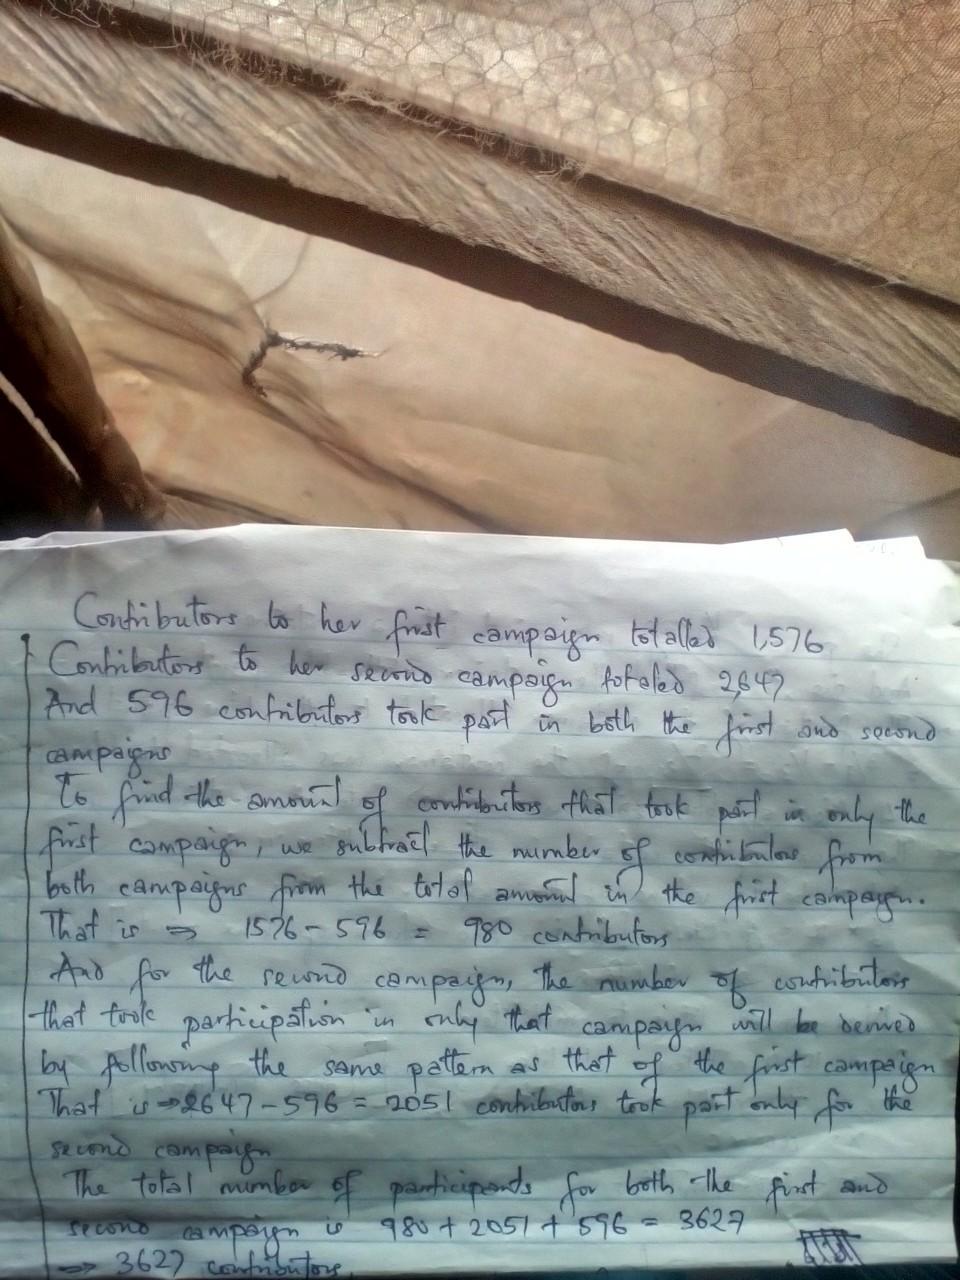 Contributors to her first campaign totalled 1,576
Contributors to her second campaign totaled 2,647
And 596 contributors took part in both the first and second
campaigns
To find the amount of contributors that took part in only the
first campaign, we subtract the number of contributors from
both campaigns from the total amount in the first campaign.
That is ⇒ 1576 - 596 = 980 contributors
And for the second campaign, the number of contributors
that took participation in only that campaign will be derived
by following the same pattern as that of the first campaign
That is ⇒ 2647 - 596 = 2051 contributors took part only for the
second campaign
The total number of participants for both the first and
second campaign is 980 + 2051 + 596 = 3627
⇒ 3627 contributors.